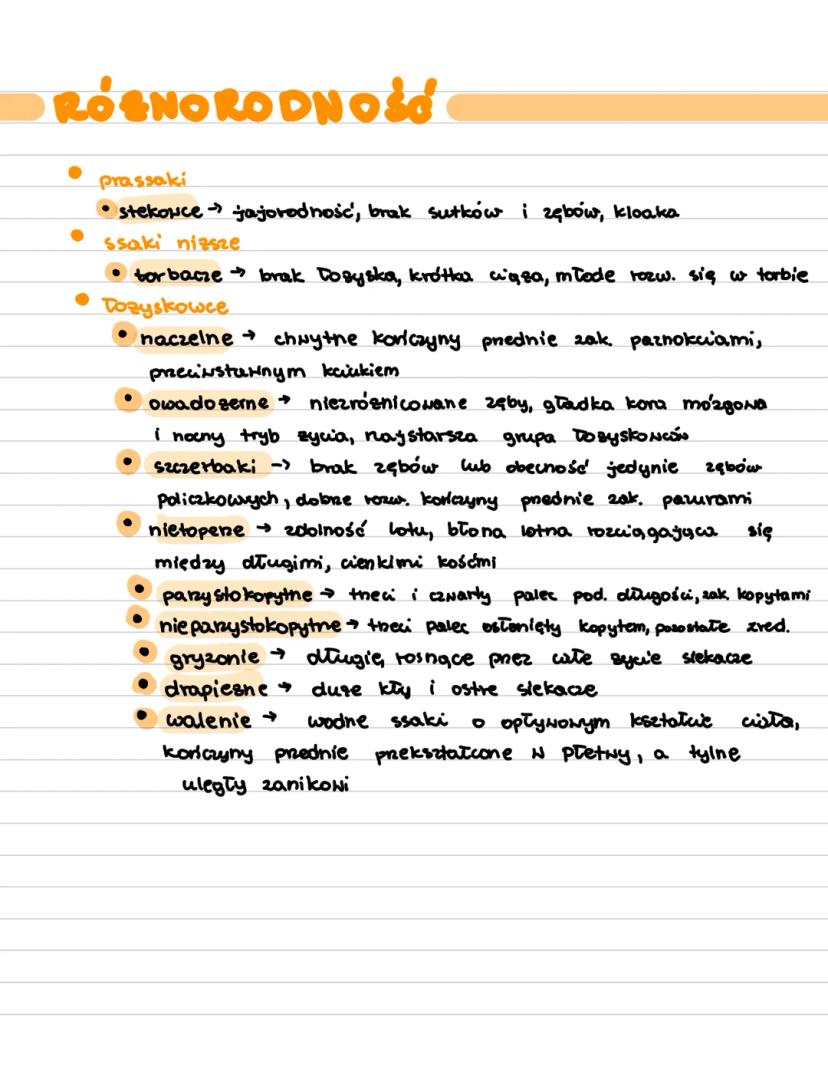 RÓŻNORODNOŚĆ
• prassaki
• stekowce → jajorodność, brak sutków i zębów, kloaka
• ssaki niższe
• torbacze → brak łożyska, krótka ciąża, młode rozw. się w torbie
• łożyskowce
• naczelne → chwytne kończyny przednie zak. paznokciami,
przeciwstawnym kciukiem
• owadożerne → niezróżnicowane zęby, gładka kora mózgowa
i nocny tryb życia, najstarsza grupa łożyskowców
• szczerbaki → brak zębów lub obecność jedynie zębów
policzkowych, dobrze rozw. kończyny przednie zak. pazurami
• nietoperze → zdolność lotu, błona lotna rozciągająca się
między długimi, cienkimi kośćmi
• parzystokopytne → trzeci i czwarty palec pod. długości, zak. kopytami
• nieparzystokopytne → trzeci palec osłonięty kopytem, pozostałe zred.
• gryzonie → długie, rosnące przez całe życie siekacze
• drapieżne → duże kły i ostre siekacze
• walenie → wodne ssaki o opływowym kształcie ciała,
kończyny przednie przekształcone w płetwy, a tylne
uległy zanikowi